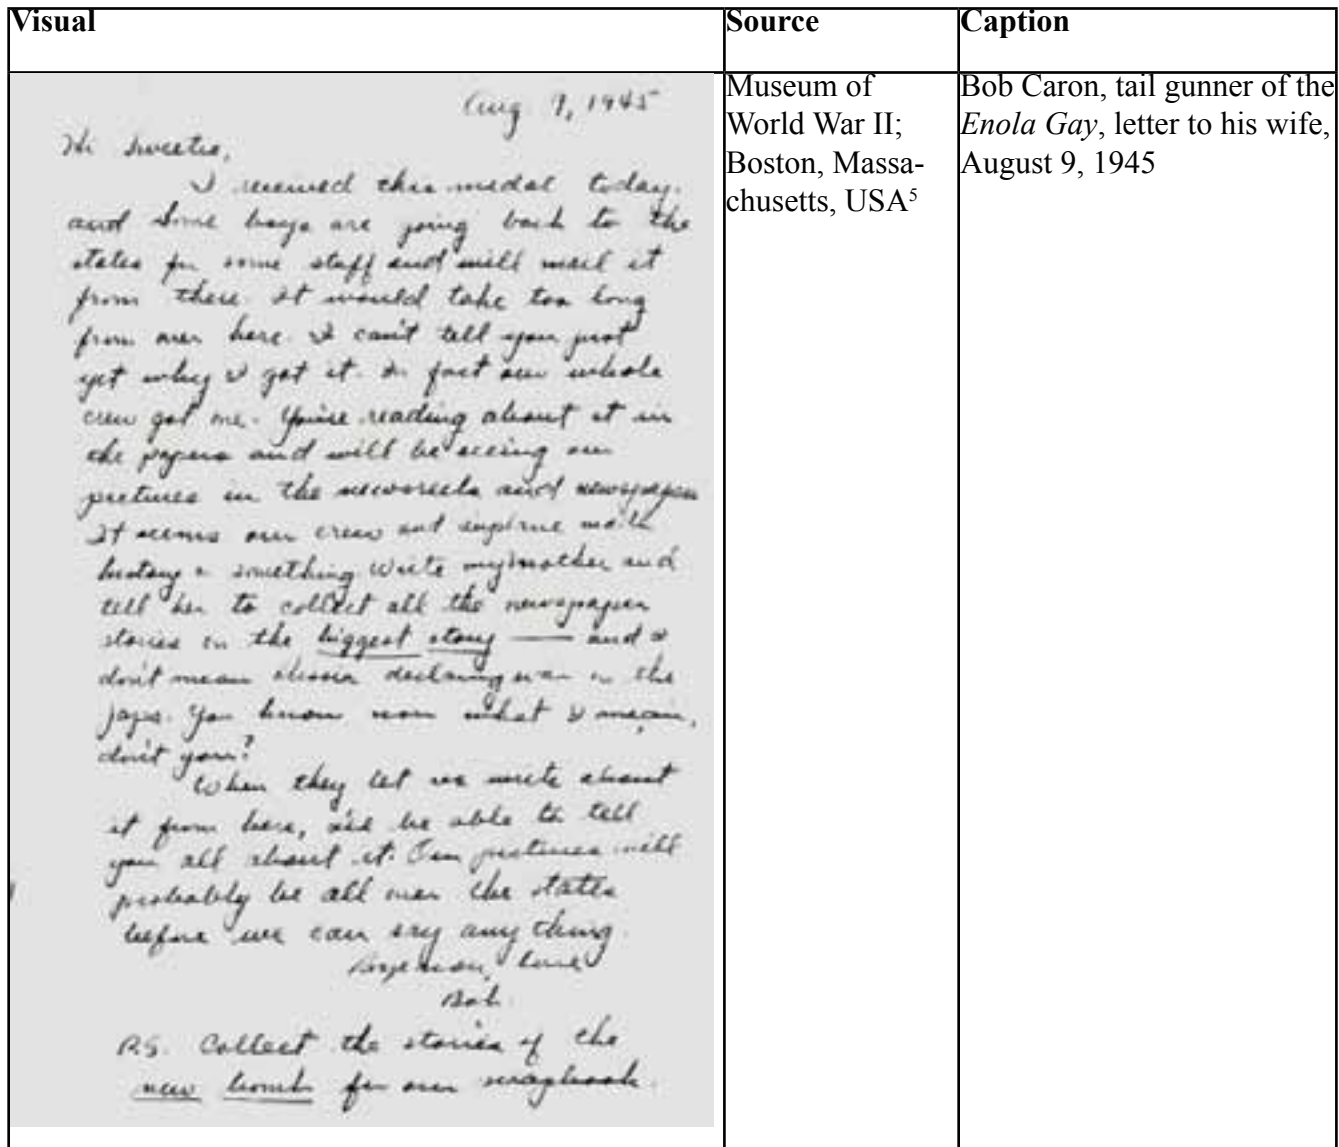 Visual
Source
Caption
Aug 9, 1945
Hi Sweetie,
I received this medal today.
and some boys are going back to the
states for some stuff and will mail it
from there. It would take too long
from over here. I can't tell you just
yet why I got it. In fact our whole
crew got one. You're reading about it in
the papers and will be seeing our
pictures in the newsreels and newspapers
It seems our crew and airplane made
history or something. Write my mother and
tell her to collect all the newspaper
stories on the biggest story — and I
don't mean Russia declaring war on the
Japs. You know now what I mean,
don't you?
When they let us write about
it from here, I'll be able to tell
you all about it. Our pictures will
probably be all over the states
before we can say anything.
love
Bob.
P.S. Collect the stories of the
new bomb for our scrapbook.
Museum of
World War II;
Boston, Massa-
chusetts, USA5
Bob Caron, tail gunner of the
Enola Gay, letter to his wife,
August 9, 1945